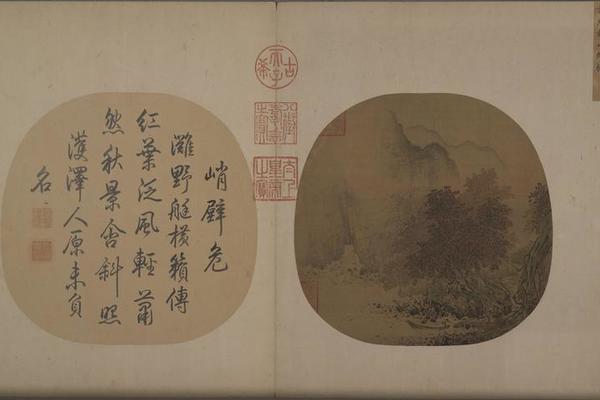 峭壁危
灘野艇橫籟傳
紅葉泛風輕蕭
然秋景含斜照
濩澤人原未負
名
古希天子
八徵耄念之寶
太上皇帝之寶